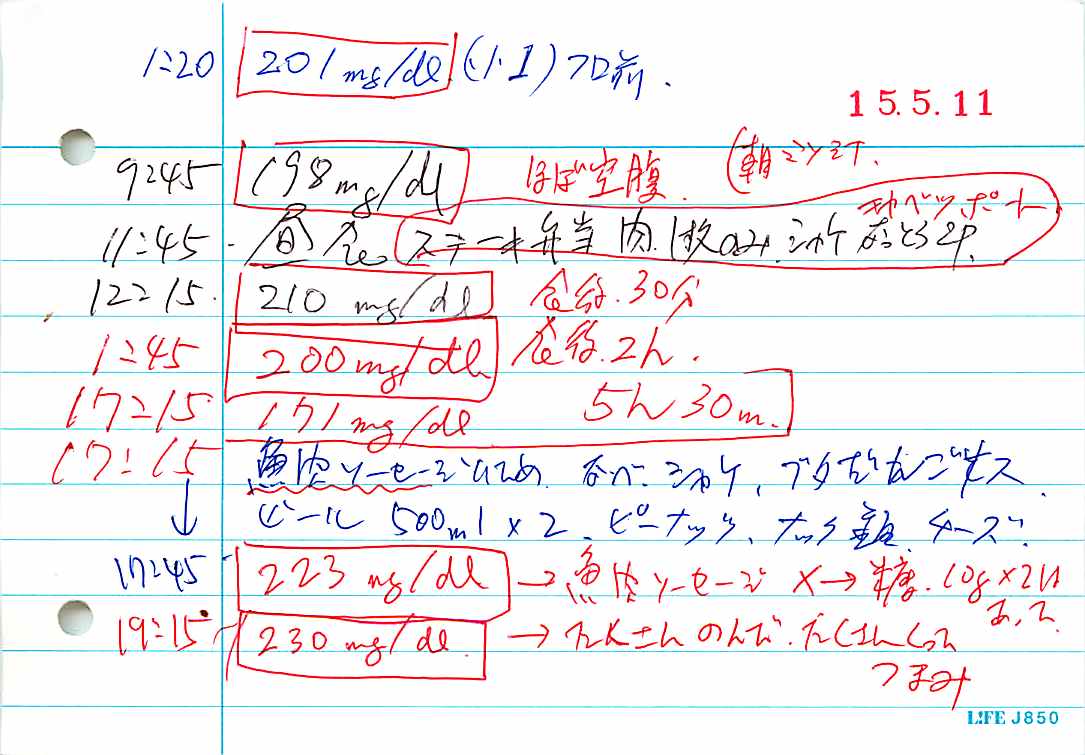 1:20 201mg/dl (1.1) フロ前.
15.5.11
9:45 198mg/dl ほぼ空腹. (朝
キャベツ ポート
11:45. 昼食 ステーキ弁当 肉 1枚のみ. シャケ
12:15. 210 mg/dl 食後. 30分
1:45 200mg/dl 食後. 2h.
17:15 171mg/dl 5h 30m.
17:15 魚肉ソーセージ シャケ、ブタ
ビール 500ml×2、ピーナッツ、ナッツ チーズ.
17:45 223 mg/dl → 魚肉ソーセージ ×→ 糖. 10g×2は
あって
19:15 230 mg/dl. → たくさん のんで. たくさんくって
つまみ
LIFE J850